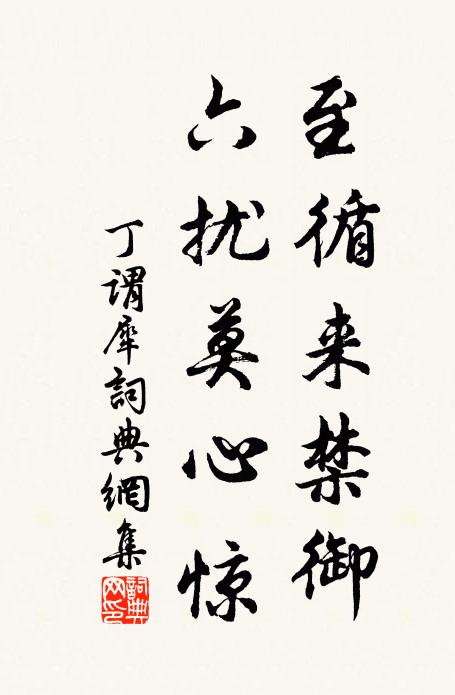 至循来禁御
六扰莫心惊
丁謂犀詞典網集
詞典网印